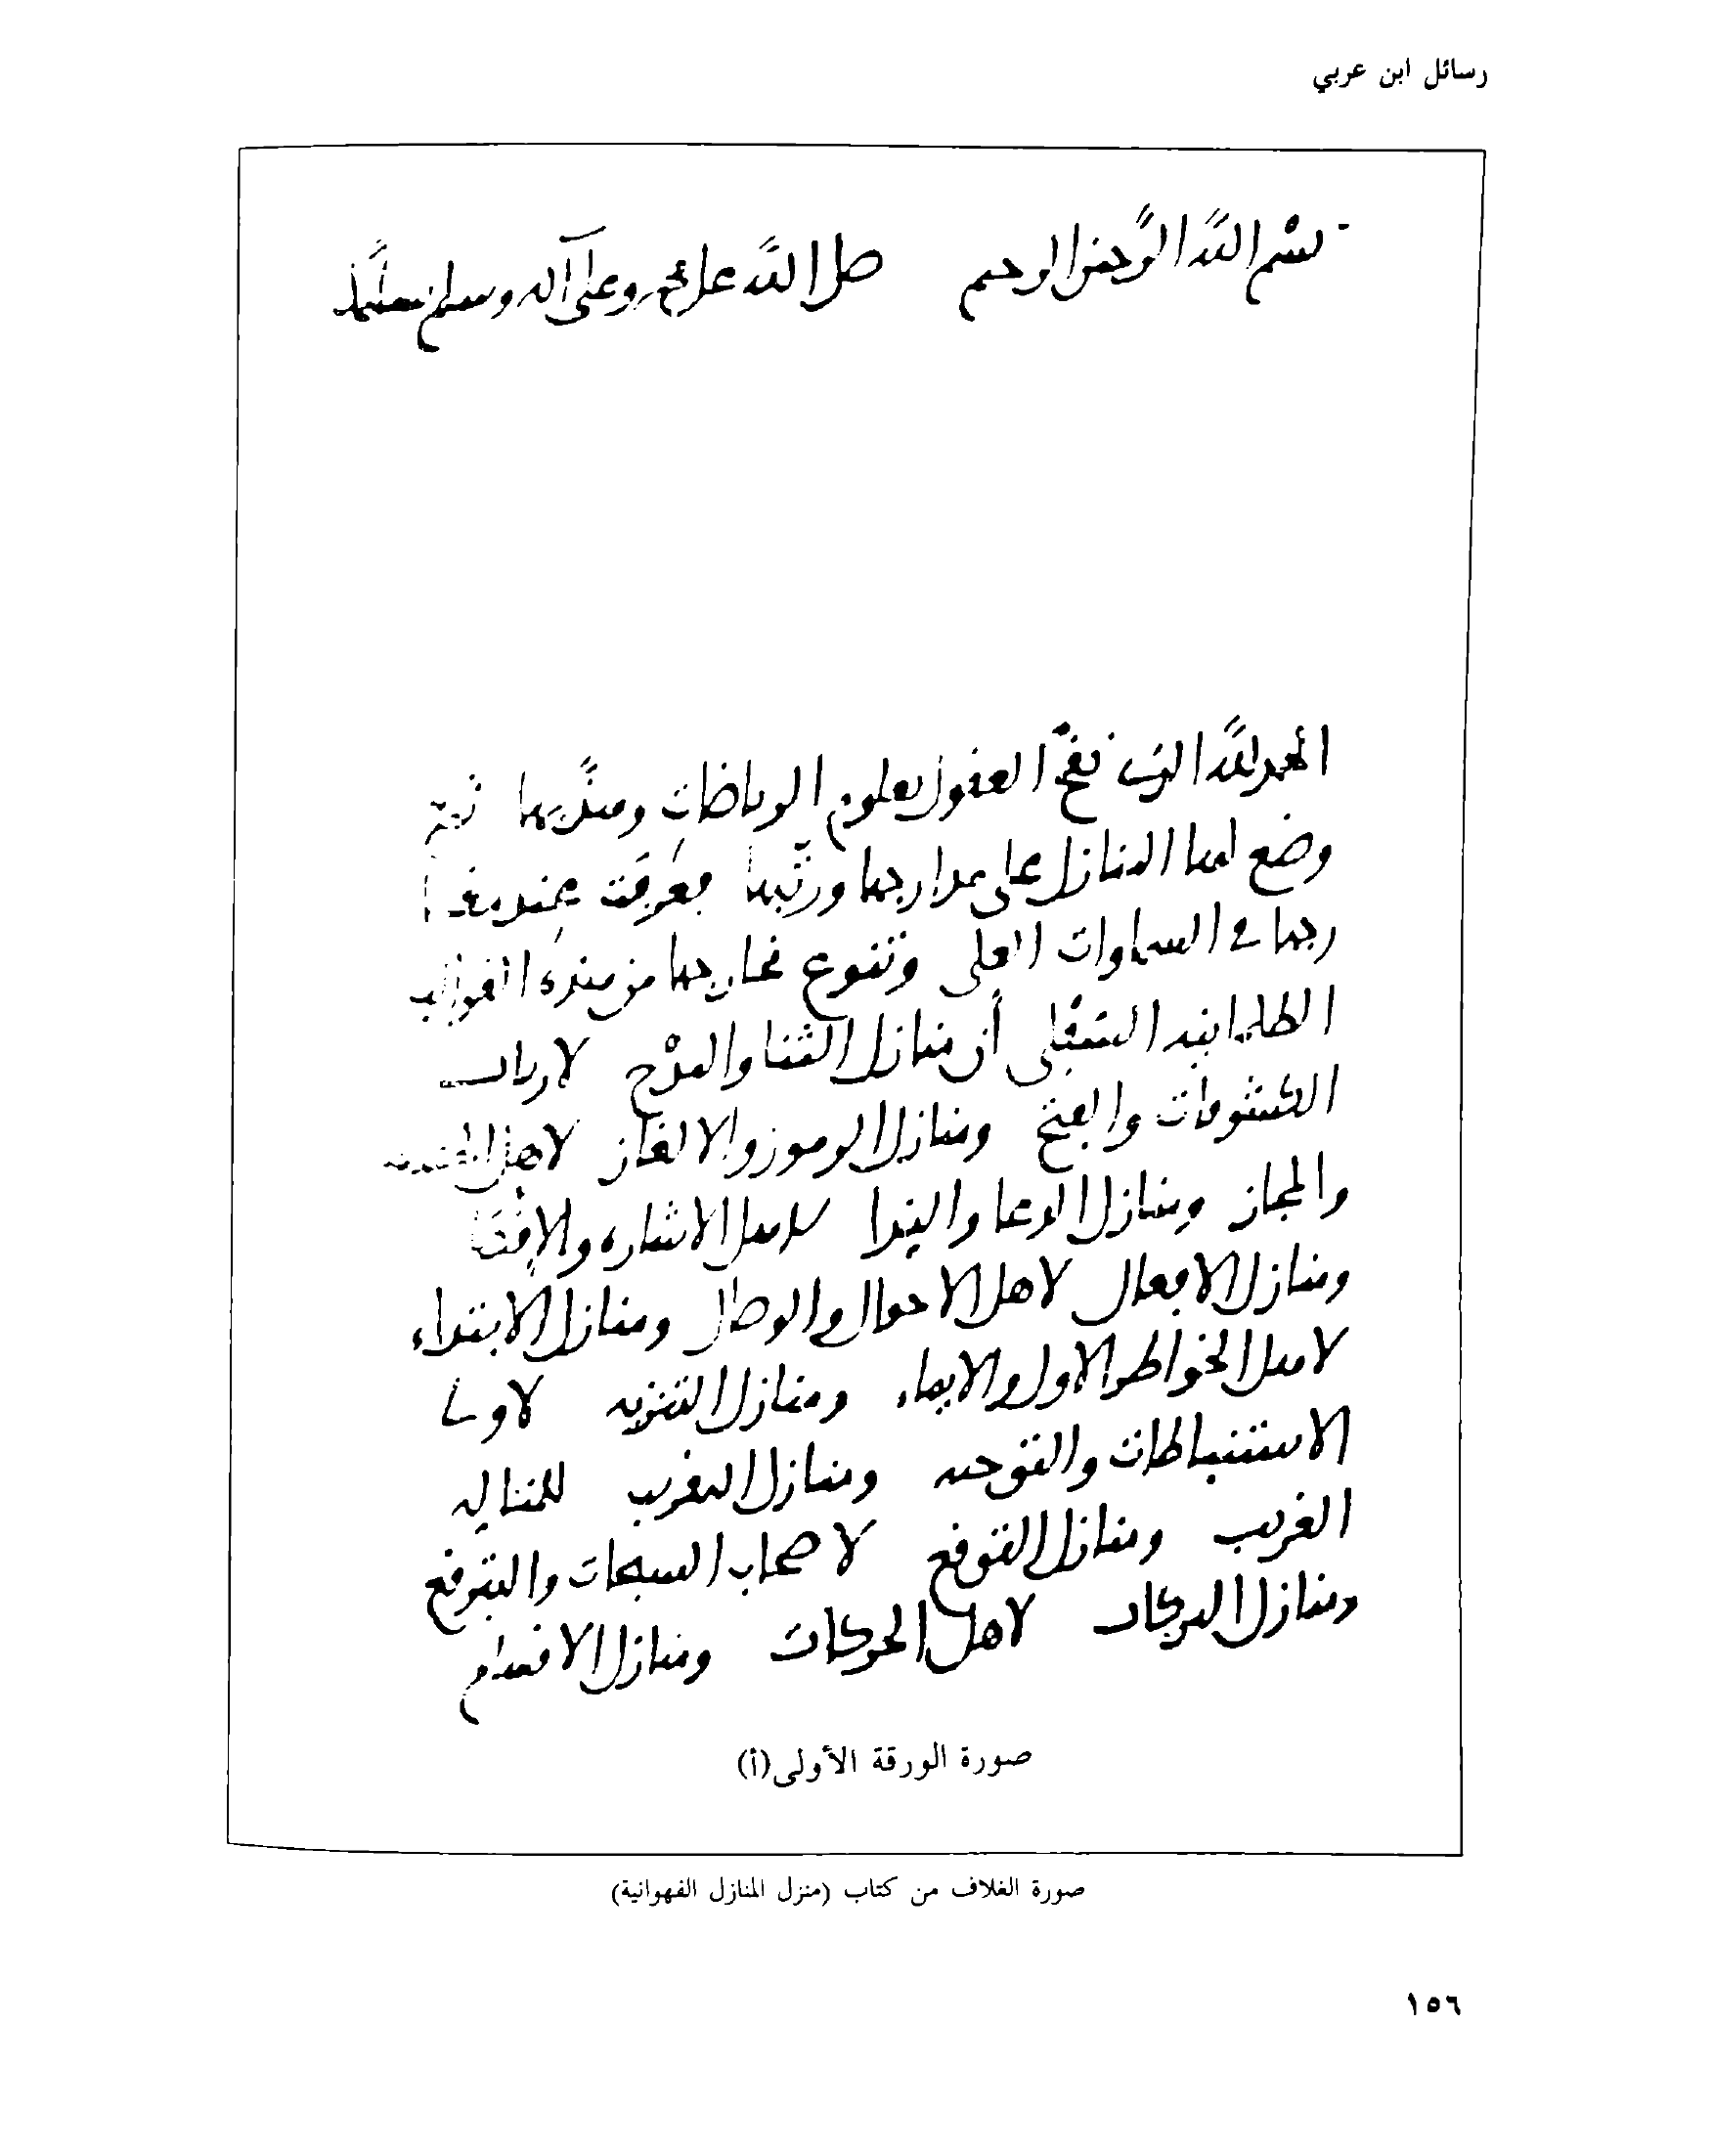 رسائل ابن عربي
بسم الله الرحمن الرحيم صلى الله على محمد وعلى آله وسلم تسليما
الحمد لله الذي العقول بعلوم الرياضات
وضع لها المنازل على مدارجها ورتبها فعرفت
في السماوات العلى وتنوع من هذه القوالب
السفلى أن منازل الثنا والمدح لارباب
الكشوفات والفتح ومنازل الرموز والالغاز لاهل الحقيقة
والمجاز ومنازل الدعا والندا لاهل الاشاره
ومنازل الافعال لاهل الاحوال والوصال ومنازل الابتداء
لاهل الخواطر الاول والايماء ومنازل التنزيه لاولى
الاستنباطات والتوجيه ومنازل التقريب للمتاله
الغريب ومنازل التوقع لاصحاب السبحات والتبرقع
ومنازل البركات لاهل الحركات ومنازل الاقسام
صورة الورقة الأولى(أ)
صورة الغلاف من كتاب (منزل المنازل الفهوانية)
١٥٦